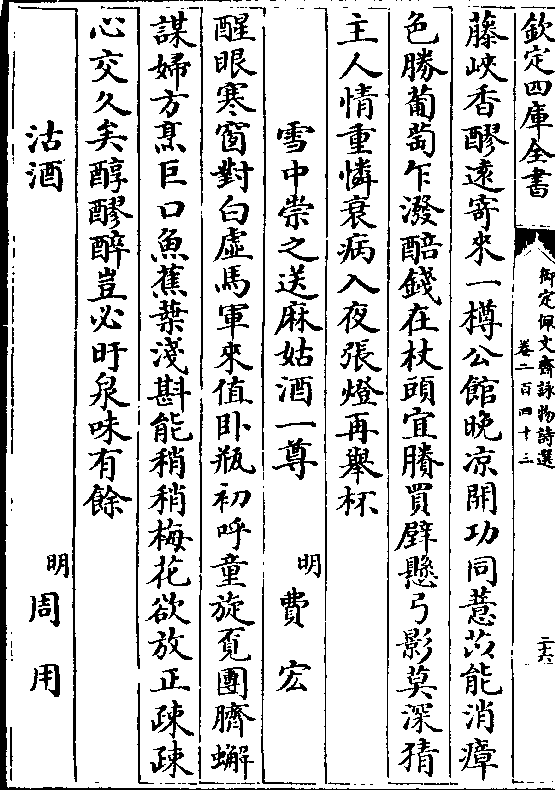 欽定四庫全書
御定佩文齋詠物詩選
卷二百四十三
二十六
藤峽香醪遠寄來一樽公館晚凉開功同薏苡能消瘴
色勝葡萄乍潑醅錢在杖頭宜賸買壁懸弓影莫深猜
主人情重憐衰病入夜張燈再舉杯
雪中崇之送麻姑酒一尊 明 費宏
醒眼寒窗對白虛馬軍來值卧瓶初呼童旋覔團臍蠏
謀婦方烹巨口魚蕉葉淺斟能稍稍梅花欲放正疎疎
心交久矣醇醪醉豈必盱泉味有餘
沽酒 明 周用